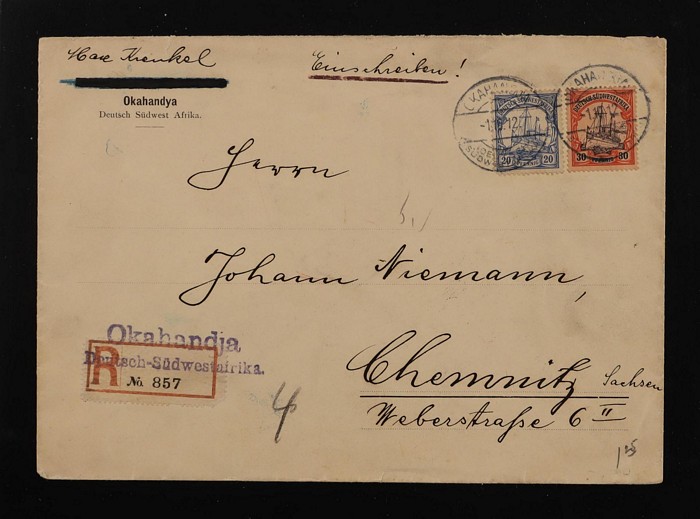 Max Krenkel
Einschreiben!
Okahandya
Deutsch Südwest Afrika.
OKAHANDJA
1. 12.
DEUTSCH-SÜDWESTAFRIKA
20 20
DEUTSCH-SÜDWESTAFRIKA
30 30
Herrn
Johann Niemann,
Okahandja
Deutsch-Südwestafrika.
R No. 857
Chemnitz Sachsen
Weberstraße 6 II